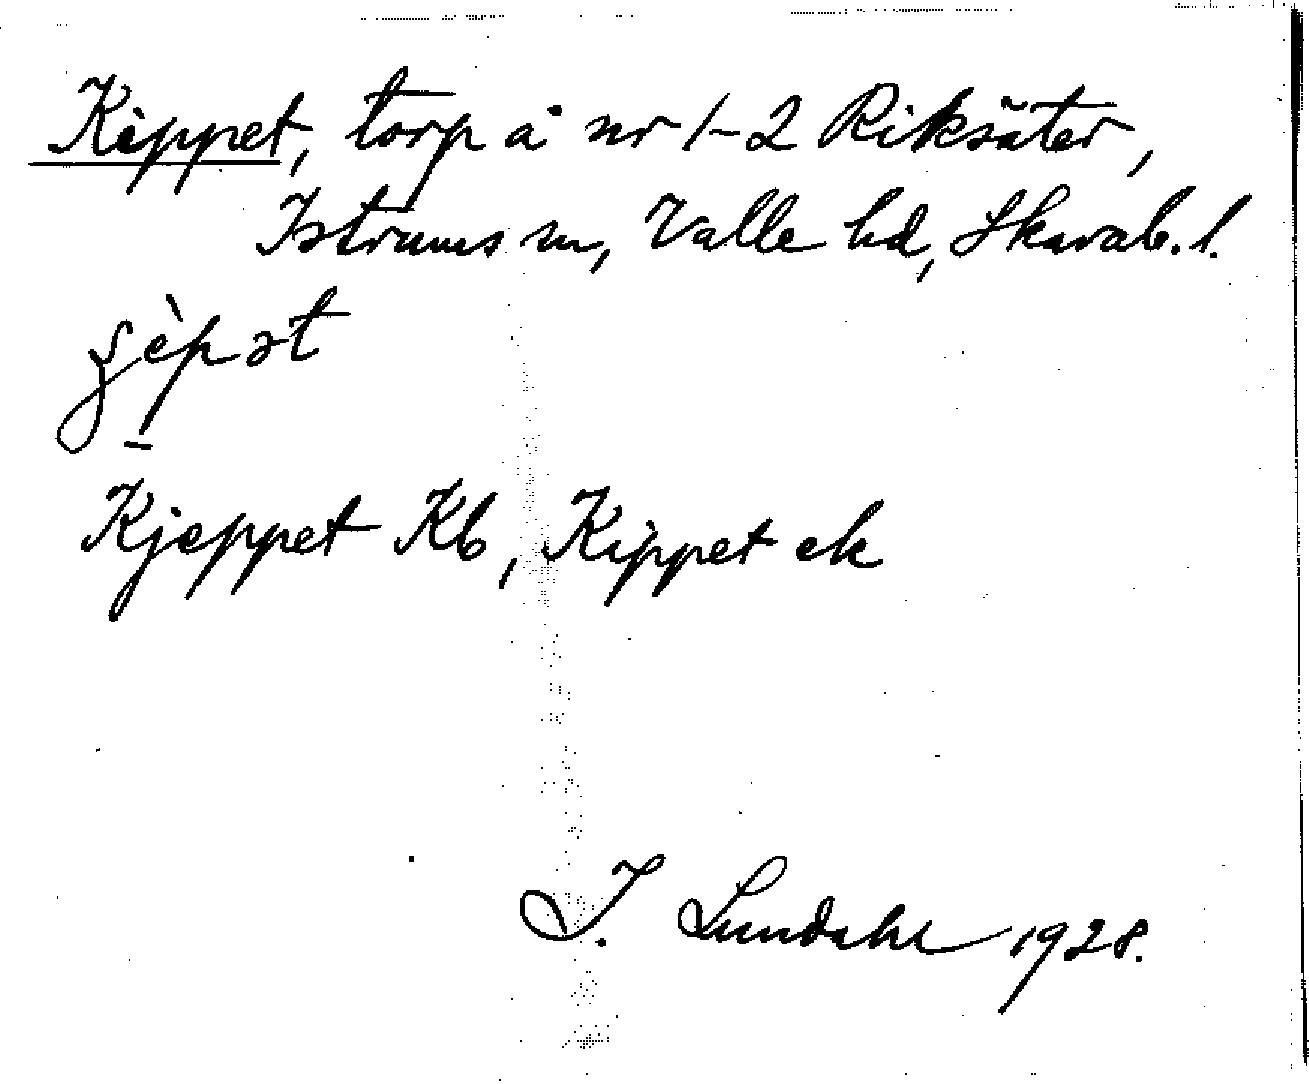 Kippet, torp å nr 1-2 Riksäter,
Istrums sn, Valle hd, Skarab. l.
Kjeppet Kb, Kippet ek
I. Lundahl 1928.